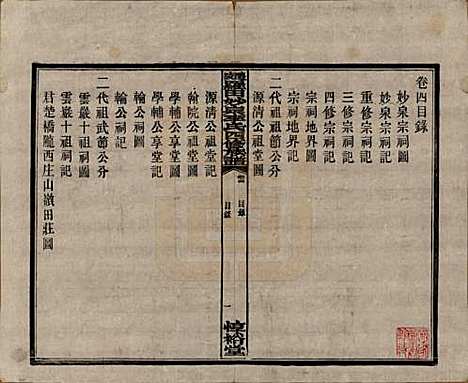 卷四目錄
妙泉宗祠圖
妙泉宗祠記
重修宗祠記
三修宗祠記
四修宗祠記
宗祠圖
宗祠地界記
二代祖祠圖
源清公祖堂圖
源清公祖堂記
翰院公祠圖
學輔公享堂圖
學輔公享堂記
翰公祠圖
翰公祠記
二代祖武節公分
雲巖十祖祠圖
雲巖十祖祠記
君楚橋隴西庄山嶺田莊圖
卷四
目錄
一
惇裕堂